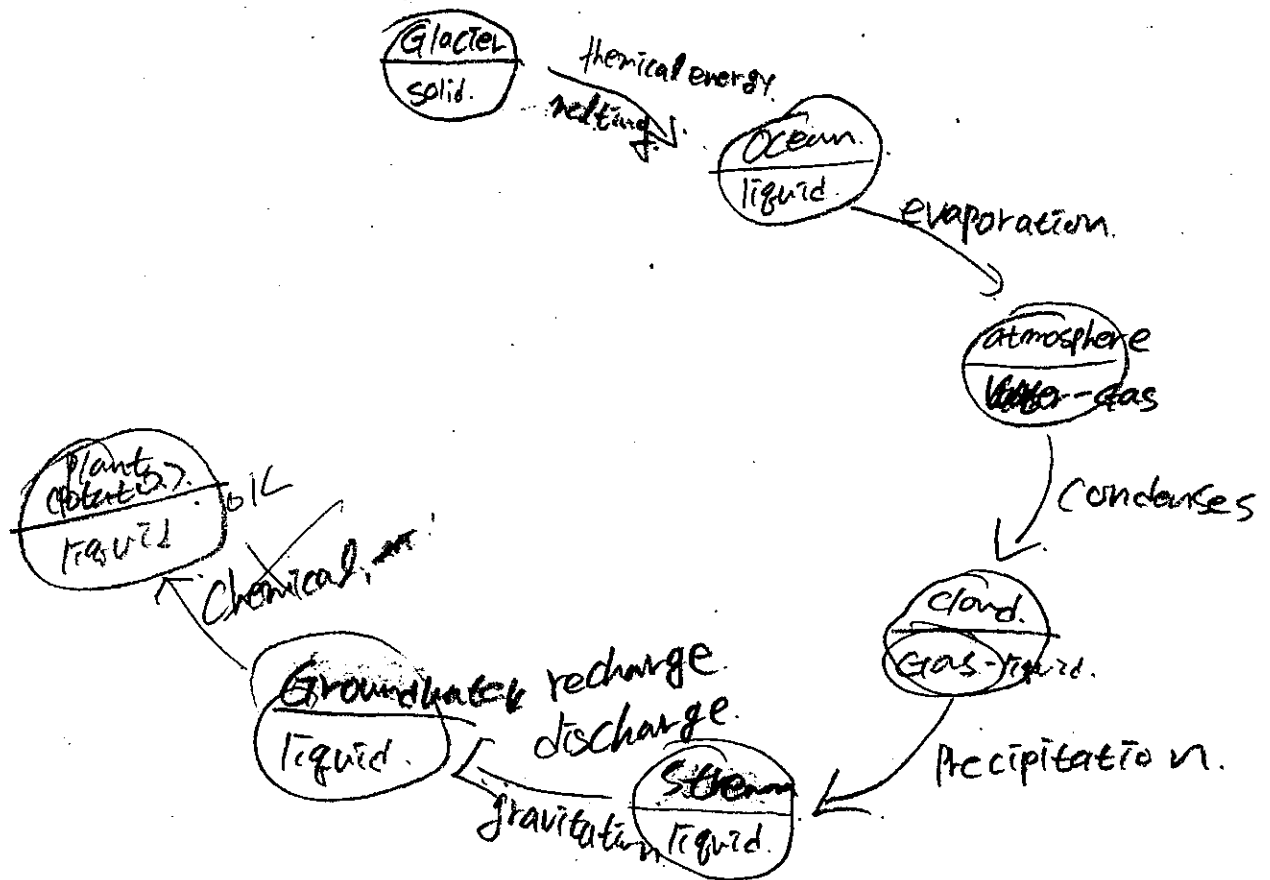 Glacier
solid.
themical energy.
melting.
Ocean.
liquid.
evaporation.
atmosphere
-Gas
Condenses
Cloud.
Gas-liquid.
Precipitation.
Stream
liquid.
recharge
discharge.
gravitation
Groundwater
liquid.
Chemical.
Plant
liquid